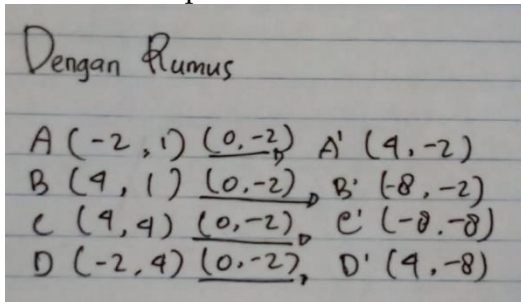 Dengan Rumus
A (-2, 1) (0,-2) A' (4, -2)
B (4, 1) (0,-2) B' (-8, -2)
C (4, 4) (0,-2) C' (-8, -8)
D (-2, 4) (0,-2) D' (4, -8)